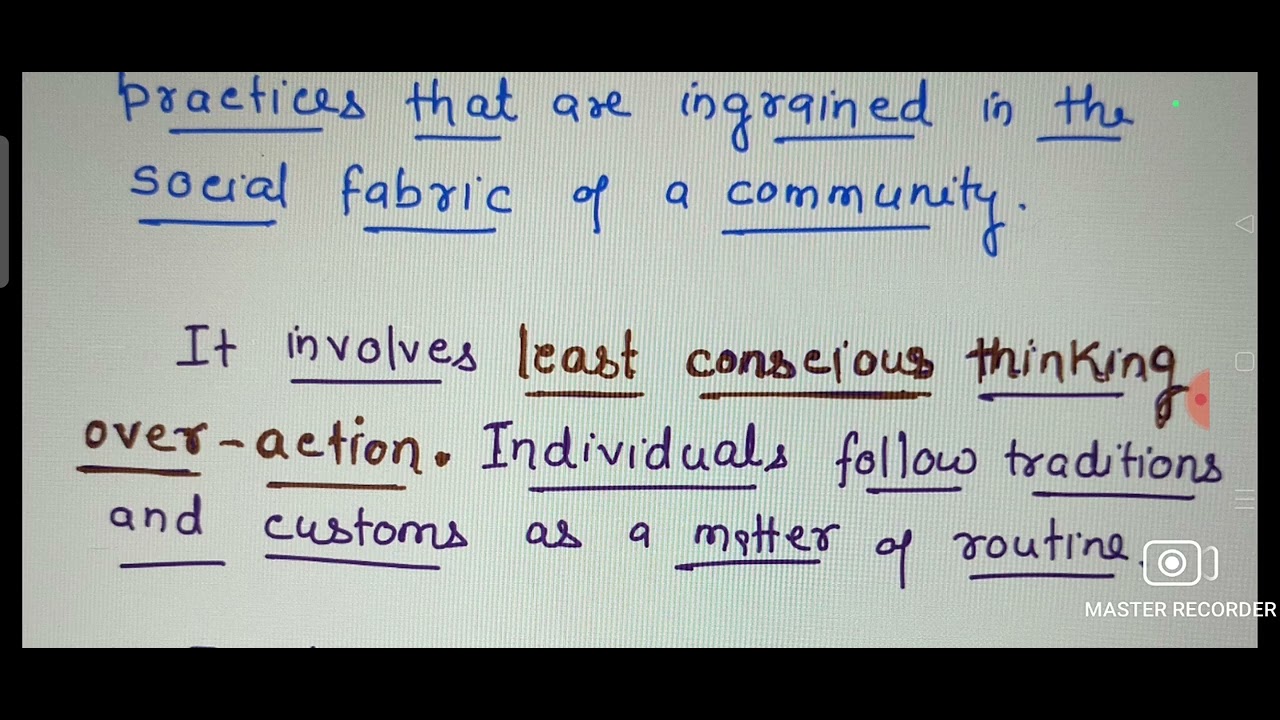 practices that are ingrained in the
social fabric of a community.
It involves least conscious thinking
over-action. Individuals follow traditions
and customs as a matter of routine.
MASTER RECORDER